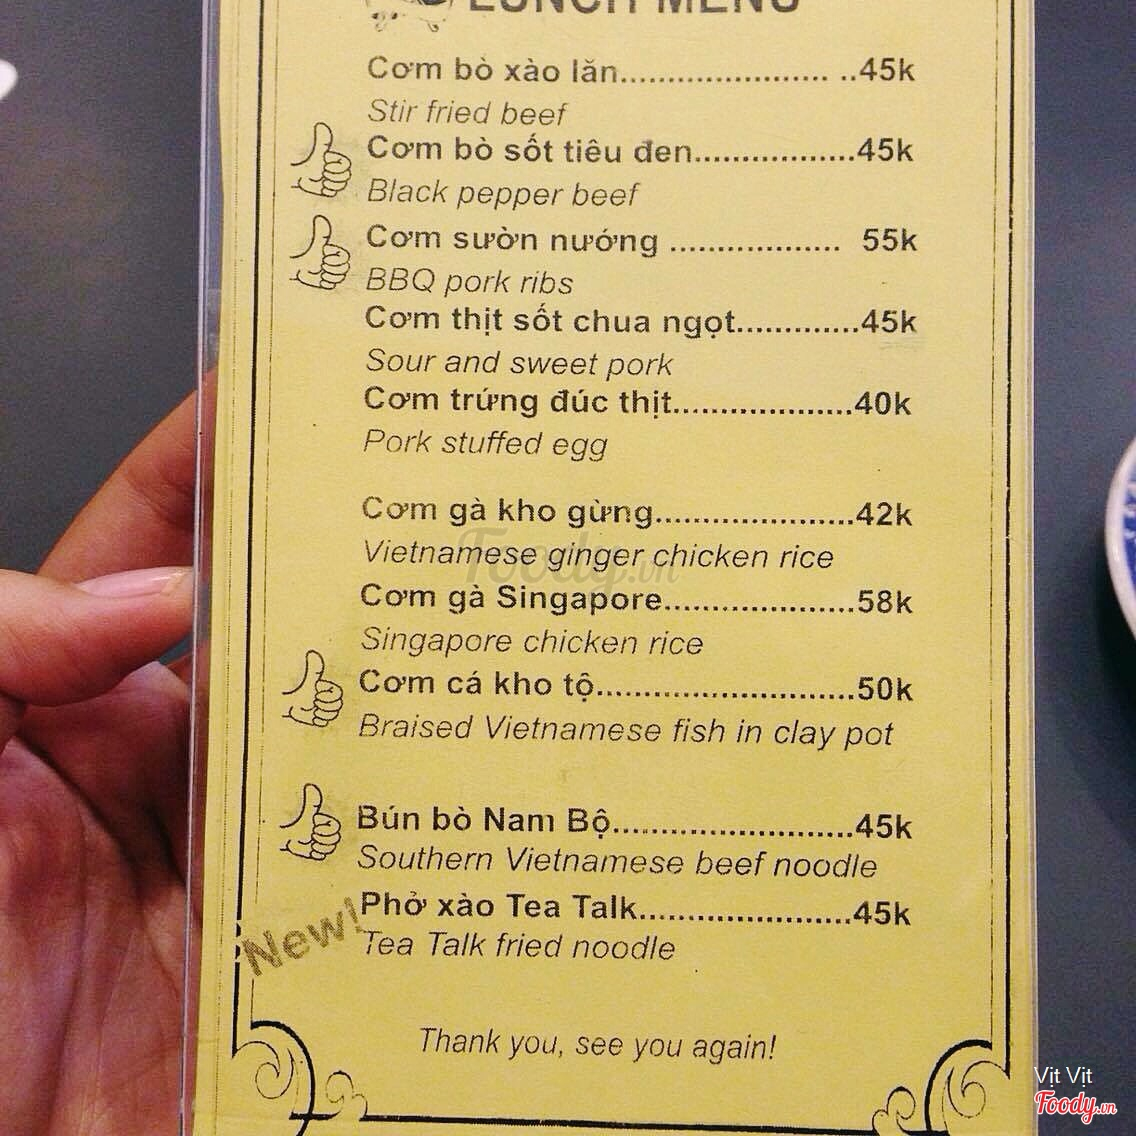 LUNCH MENU
Cơm bò xào lăn...................... ..45k
Stir fried beef
Cơm bò sốt tiêu đen.................45k
Black pepper beef
Cơm sườn nướng .................. 55k
BBQ pork ribs
Cơm thịt sốt chua ngọt.............45k
Sour and sweet pork
Cơm trứng đúc thịt...................40k
Pork stuffed egg
Cơm gà kho gừng.....................42k
Vietnamese ginger chicken rice
Foody.vn
Cơm gà Singapore....................58k
Singapore chicken rice
Cơm cá kho tộ...........................50k
Braised Vietnamese fish in clay pot
Bún bò Nam Bộ.........................45k
Southern Vietnamese beef noodle
Phở xào Tea Talk......................45k
New!
Tea Talk fried noodle
Thank you, see you again!
Vịt Vịt
Foody.vn